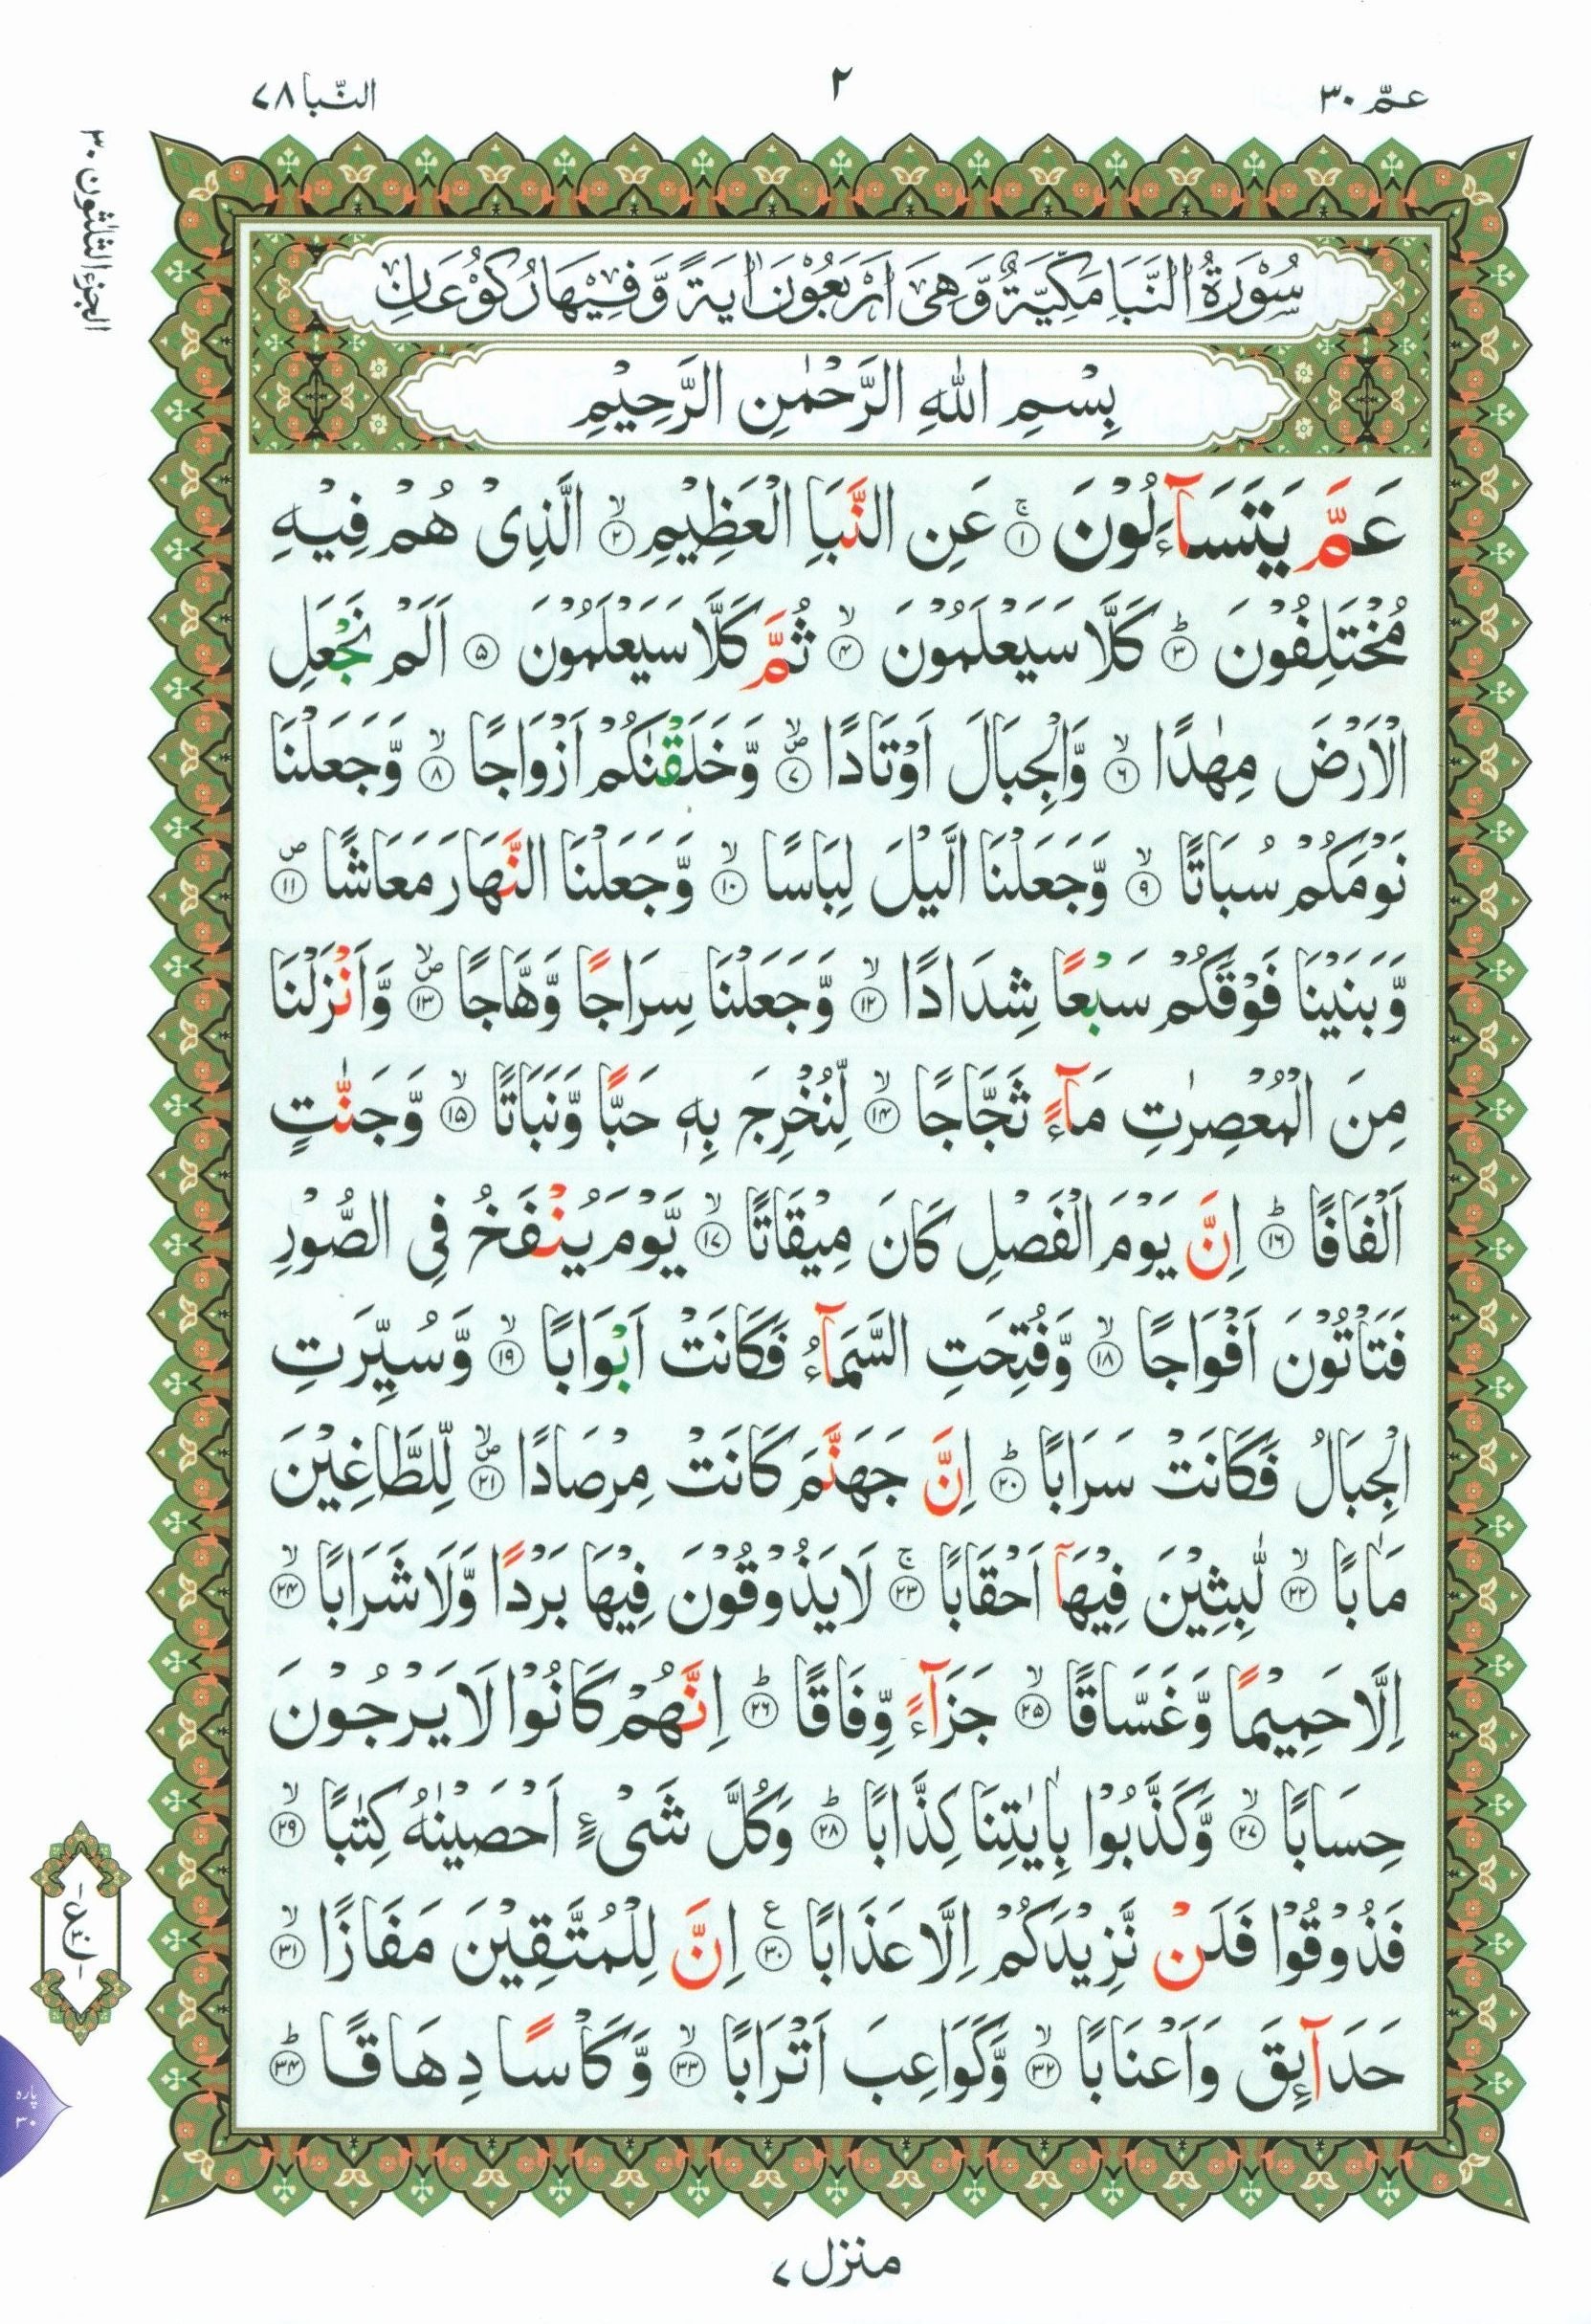 عمّ ۳۰
۲
النّبا ۷۸
الجزء الثلٰثون ۳۰
سُوْرَةُ النَّبَاِ مَكِّيَّةٌ وَّهِىَ اَرْبَعُوْنَ اٰيَةً وَّفِيْهَا رُكُوْعَانِ
بِسْمِ اللّٰهِ الرَّحْمٰنِ الرَّحِيْمِ
عَمَّ يَتَسَآءَلُوْنَ ۚ﴿۱﴾ عَنِ النَّبَاِ الْعَظِيْمِ ۙ﴿۲﴾ الَّذِىْ هُمْ فِيْهِ
مُخْتَلِفُوْنَ ؕ﴿۳﴾ كَلَّا سَيَعْلَمُوْنَ ۙ﴿۴﴾ ثُمَّ كَلَّا سَيَعْلَمُوْنَ ﴿۵﴾ اَلَمْ نَجْعَلِ
الْاَرْضَ مِهٰدًا ۙ﴿۶﴾ وَّالْجِبَالَ اَوْتَادًا ۪ۙ﴿۷﴾ وَّخَلَقْنٰكُمْ اَزْوَاجًا ۙ﴿۸﴾ وَّجَعَلْنَا
نَوْمَكُمْ سُبَاتًا ۙ﴿۹﴾ وَّجَعَلْنَا الَّيْلَ لِبَاسًا ۙ﴿۱۰﴾ وَّجَعَلْنَا النَّهَارَ مَعَاشًا ۪﴿۱۱﴾
وَّبَنَيْنَا فَوْقَكُمْ سَبْعًا شِدَادًا ۙ﴿۱۲﴾ وَّجَعَلْنَا سِرَاجًا وَّهَّاجًا ۪ۙ﴿۱۳﴾ وَّاَنْزَلْنَا
مِنَ الْمُعْصِرٰتِ مَآءً ثَجَّاجًا ۙ﴿۱۴﴾ لِّنُخْرِجَ بِهٖ حَبًّا وَّنَبَاتًا ۙ﴿۱۵﴾ وَّجَنّٰتٍ
اَلْفَافًا ؕ﴿۱۶﴾ اِنَّ يَوْمَ الْفَصْلِ كَانَ مِيْقَاتًا ۙ﴿۱۷﴾ يَّوْمَ يُنْفَخُ فِى الصُّوْرِ
فَتَاْتُوْنَ اَفْوَاجًا ۙ﴿۱۸﴾ وَّفُتِحَتِ السَّمَآءُ فَكَانَتْ اَبْوَابًا ۙ﴿۱۹﴾ وَّسُيِّرَتِ
الْجِبَالُ فَكَانَتْ سَرَابًا ؕ﴿۲۰﴾ اِنَّ جَهَنَّمَ كَانَتْ مِرْصَادًا ۪ۙ﴿۲۱﴾ لِّلطَّاغِيْنَ
مَاٰبًا ۙ﴿۲۲﴾ لّٰبِثِيْنَ فِيْهَآ اَحْقَابًا ۚ﴿۲۳﴾ لَا يَذُوْقُوْنَ فِيْهَا بَرْدًا وَّلَا شَرَابًا ۙ﴿۲۴﴾
اِلَّا حَمِيْمًا وَّغَسَّاقًا ۙ﴿۲۵﴾ جَزَآءً وِّفَاقًا ؕ﴿۲۶﴾ اِنَّهُمْ كَانُوْا لَا يَرْجُوْنَ
حِسَابًا ۙ﴿۲۷﴾ وَّكَذَّبُوْا بِاٰيٰتِنَا كِذَّابًا ؕ﴿۲۸﴾ وَكُلَّ شَىْءٍ اَحْصَيْنٰهُ كِتٰبًا ۙ﴿۲۹﴾
فَذُوْقُوْا فَلَنْ نَّزِيْدَكُمْ اِلَّا عَذَابًا ﴿۳۰﴾ع اِنَّ لِلْمُتَّقِيْنَ مَفَازًا ۙ﴿۳۱﴾
حَدَآئِقَ وَاَعْنَابًا ۙ﴿۳۲﴾ وَّكَوَاعِبَ اَتْرَابًا ۙ﴿۳۳﴾ وَّكَاْسًا دِهَاقًا ؕ﴿۳۴﴾
پارہ
۳۰
منزل ۷